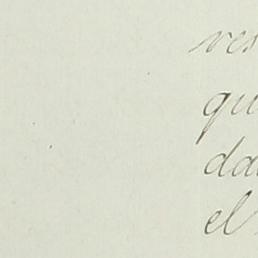 ves
qu
da
el